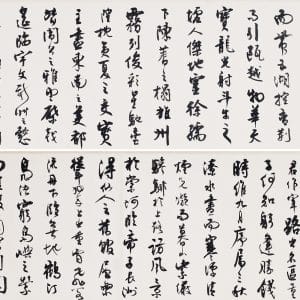 而帶五湖控蠻荊
而引甌越物華天
寶龍光射斗牛之
墟人傑地靈徐孺
下陳蕃之榻雄州
霧列俊彩星馳臺
隍枕夷夏之交賓
主盡東南之美都
督閻公之雅望棨戟
遙臨宇文新州懿
君作宰路出名
子何知躬逢勝餞
時維九月序屬三秋
潦水盡而寒潭清
煙光凝而暮山紫儼
驂騑於上路訪風景
於崇阿臨帝子長洲
得仙人之舊館層巒
聳翠上出重霄飛
流丹下臨無地鶴汀
鳧渚窮島嶼之縈